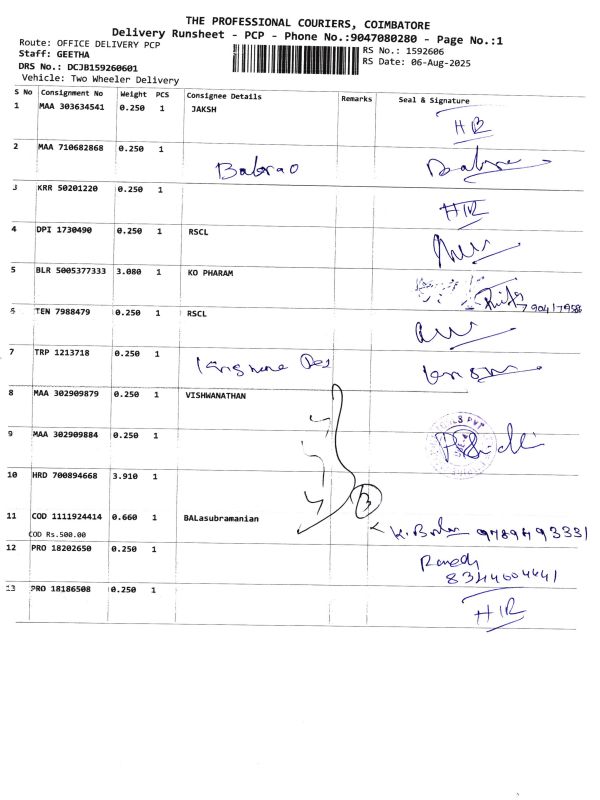 THE PROFESSIONAL COURIERS, COIMBATORE
Delivery Runsheet - PCP - Phone No.:9047080280 - Page No.:1
Route: OFFICE DELIVERY PCP
RS No.: 1592606
Staff: GEETHA
RS Date: 06-Aug-2025
DRS No.: DCJB159260601
Vehicle: Two Wheeler Delivery
S No Consignment No Weight PCS Consignee Details Remarks Seal & Signature
1 MAA 303634541 0.250 1 JAKSH
2 MAA 710682868 0.250 1 Babrao
3 KRR 50201220 0.250 1 HIR
4 DPI 1730490 0.250 1 RSCL
5 BLR 5005377333 3.080 1 KO PHARAM
6 TEN 7988479 0.250 1 RSCL
7 TRP 1213718 0.250 1
8 MAA 302909879 0.250 1 VISHWANATHAN
9 MAA 302909884 0.250 1
10 HRD 700894668 3.910 1
3
11 COD 1111924414 0.660 1 BALasubramanian
COD Rs.500.00
12 PRO 18202650 0.250 1
8344604441
13 PRO 18186508 0.250 1 HIR